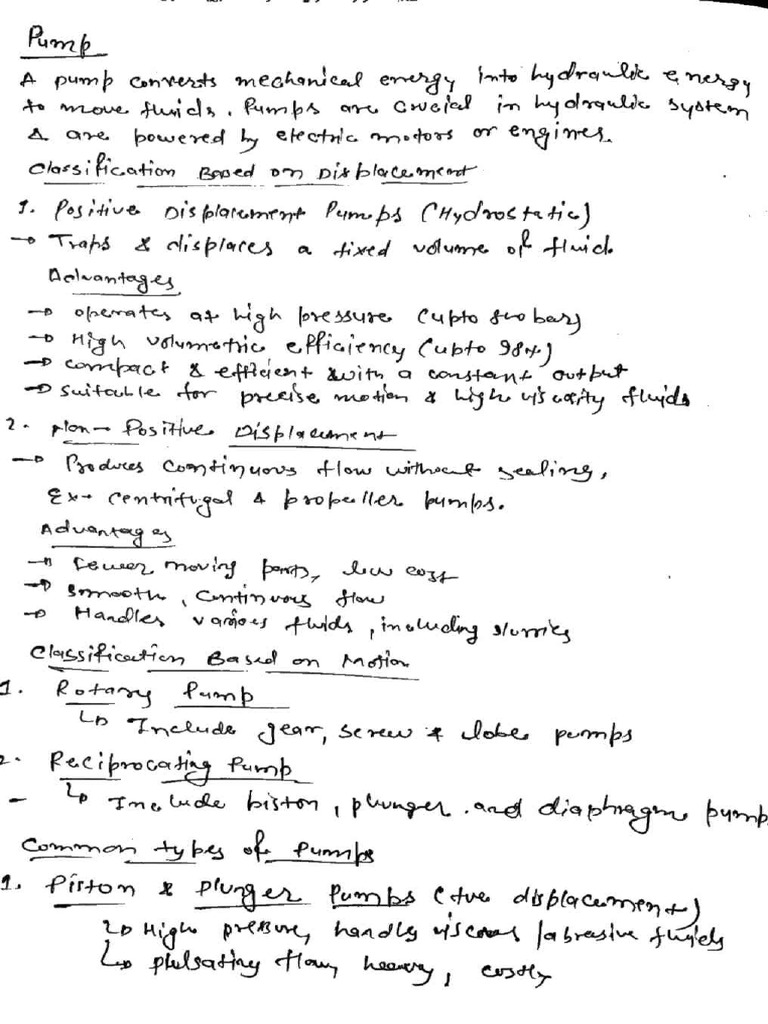 Pump
A pump converts mechanical energy into hydraulic energy
to move fluids. Pumps are crucial in hydraulic system
& are powered by electric motors or engines.
Classification Based on Displacement
1. Positive Displacement Pumps (Hydrostatic)
→ Traps & displaces a fixed volume of fluid.
Advantages
→ operates at high pressure (upto 800 bar)
→ High volumetric efficiency (upto 98%)
→ compact & efficient & with a constant output
→ suitable for precise motion & high viscosity fluids
2. Non-Positive Displacement
→ Produces continuous flow without sealing,
Ex→ centrifugal & propeller pumps.
Advantages
→ Fewer moving parts, low cost
→ smooth, continuous flow
→ Handles various fluids, including slurries
Classification Based on Motion
1. Rotary Pump
↳ Include gear, screw & lobe pumps
2. Reciprocating Pump
– ↳ Include piston, plunger and diaphragm pump
Common types of Pumps
1. Piston & Plunger Pumps (+ve displacement)
↳ High pressure, handly viscous /abrasive fluids
↳ pulsating flow, heavy, costly